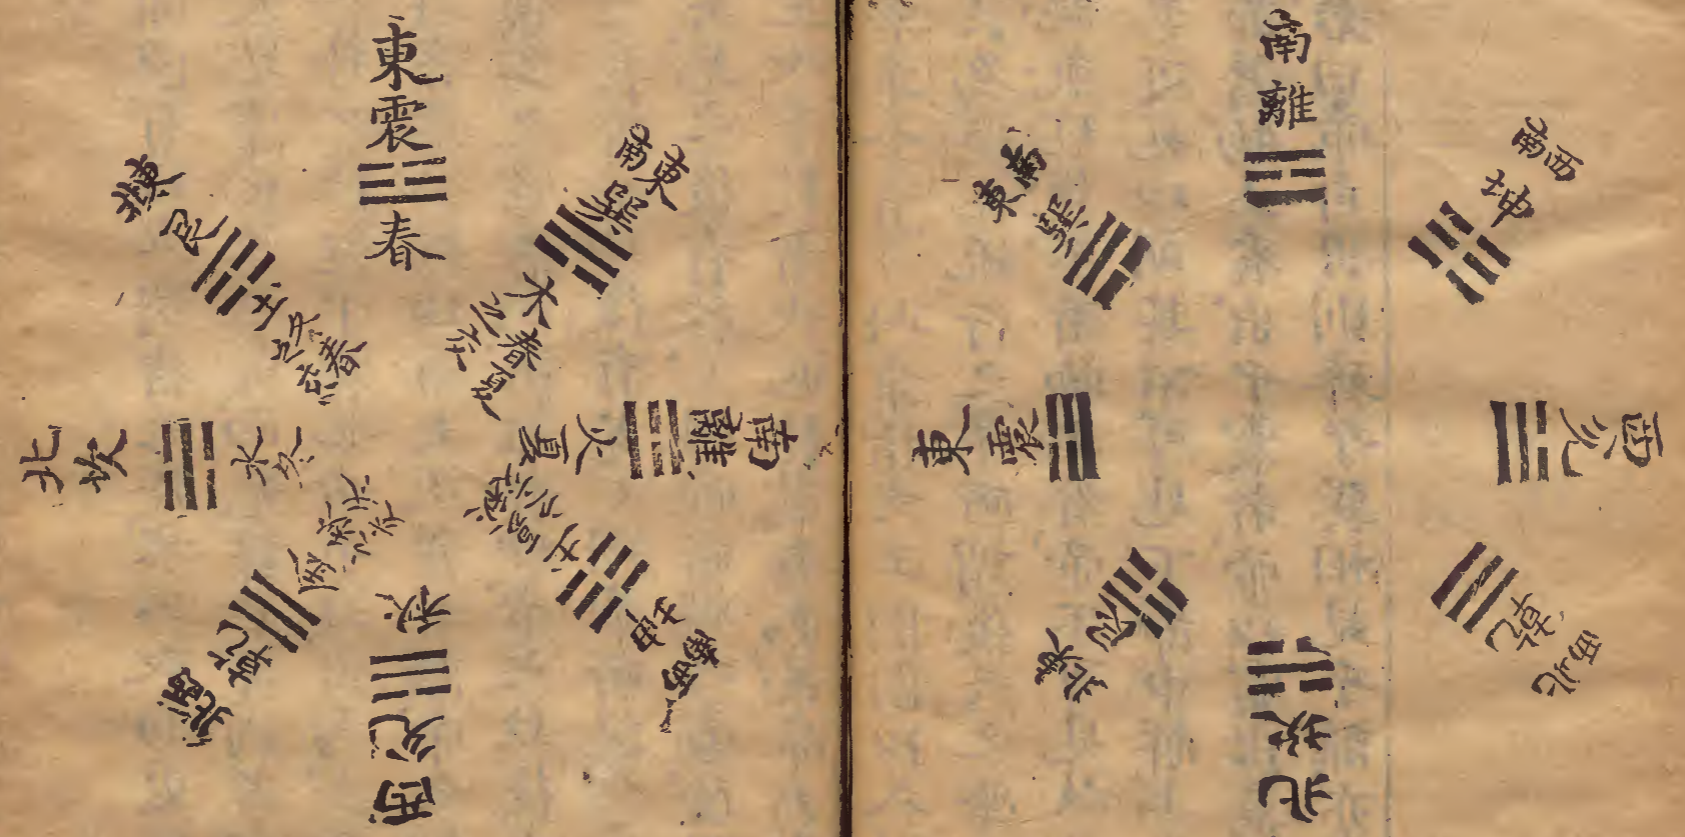 南離
西南坤
西兌
西北乾
北坎
東北艮
東震
東南巽
東震春
東南巽木春夏之交
南離火夏
西南坤土夏秋之交
西兌秋
西北乾金秋冬之交
北坎水冬
東北艮土冬春之交